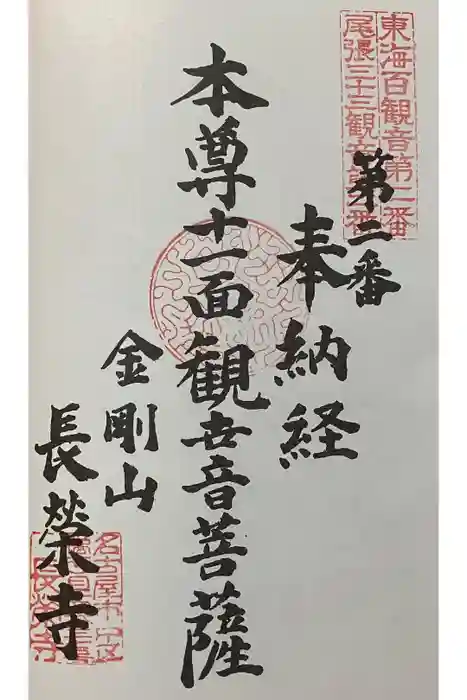 東海百観音第二番
尾張三十三観音第二番
第二番
奉納経
本尊十一面観世音菩薩
金剛山
長榮寺